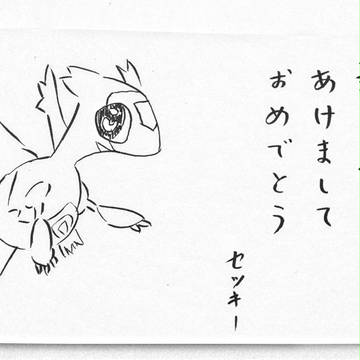 あけまして
おめでとう
セツキー